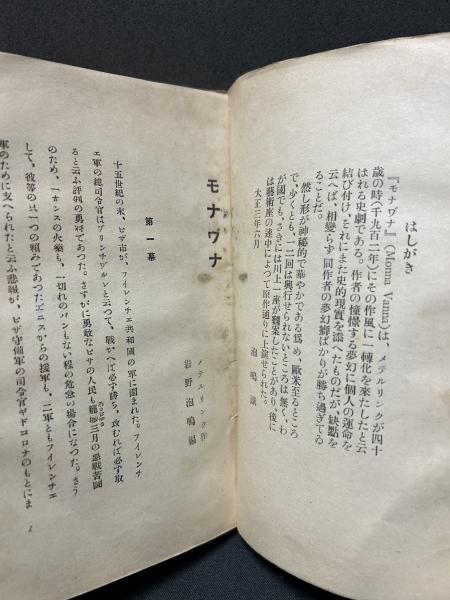 はしがき
『モナヴナ』(Monna Vanna)は、メテルリンクが四十
歳の時(千九百二年)にその作風に一轉化を來たしたと云
はれる史劇である。作者の憧憬する夢幻に個人の運命を
結び付け、それにまた史的現實を添へたものだが、缺點を
云へば、相變らず同作者の夢幻癖ばかりが勝ち過ぎてゐ
ることだ。
然し形が神秘的で華やかである爲め、歐米至るところ
で、少くとも、一二回は興行せられないところは無く、わ
が國でも、さきには川上一座が飜案したことがあり、後に
は藝術座の連中によつて原作通りに上演せられた。
大正三年六月
泡鳴識
モナヴナ
メテルリンク作
岩野泡鳴編
第一幕
十五世紀の末、ピザ市が、フイレンチェ共和國の軍に圍まれた。フイレンチ
ェ軍の總司令官はプリンチヴルレと云つて、戰かへば必ず勝ち、攻むれば必ず取
ると云ふ評判の勇將であつた。さすがに勇敢なピサの人民も籠城三月の惡戰苦鬪
のため、一オンスの火藥も、一切れのパンもない程の危急の場合になつた。さう
して、彼等の只一つの頼みであつたエニスからの援軍も、二軍ともフイレンチェ
軍のために支へられたと云ふ悲報が、ピザ守備軍の司令官ギドコロナのもとにま
1